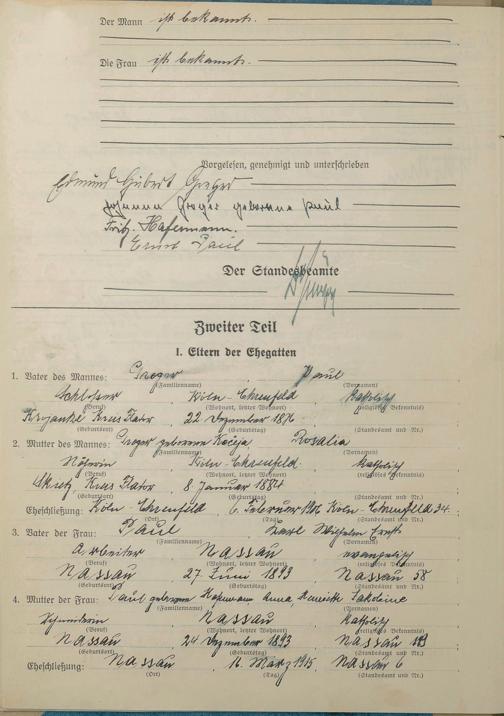 Der Mann ist bekannt.
Die Frau ist bekannt.
Vorgelesen, genehmigt und unterschrieben
Edmund Hubert Greger
Johanna Greger geborene Paul
Fritz Hafermann.
Ernst Paul
Der Standesbeamte
Zweiter Teil
I. Eltern der Ehegatten
1. Vater des Mannes: Greger Paul
(Familienname) (Vornamen)
Schlosser Köln-Ehrenfeld katholisch
(Beruf) (Wohnort, letzter Wohnort) (religiöses Bekenntnis)
22. Dezember
(Geburtsort) (Geburtstag) (Standesamt und Nr.)
2. Mutter des Mannes: Greger geborene Rosalia
(Familienname) (Vornamen)
Näherin Köln-Ehrenfeld katholisch
(Beruf) (Wohnort, letzter Wohnort) (religiöses Bekenntnis)
8. Januar 1884
(Geburtsort) (Geburtstag) (Standesamt und Nr.)
Eheschließung: Köln-Ehrenfeld 6. Februar Köln-Ehrenfeld 34.
(Ort) (Tag) (Standesamt und Nr.)
3. Vater der Frau: Paul Karl Wilhelm Ernst
(Familienname) (Vornamen)
Arbeiter Nassau evangelisch
(Beruf) (Wohnort, letzter Wohnort) (religiöses Bekenntnis)
Nassau 27. Juni 1893 Nassau 58
(Geburtsort) (Geburtstag) (Standesamt und Nr.)
4. Mutter der Frau: Paul geborene Anna
(Familienname) (Vornamen)
Nassau katholisch
(Beruf) (Wohnort, letzter Wohnort) (religiöses Bekenntnis)
Nassau 24. Dezember 1893 Nassau
(Geburtsort) (Geburtstag) (Standesamt und Nr.)
Eheschließung: Nassau 16. März 1915 Nassau 6
(Ort) (Tag) (Standesamt und Nr.)